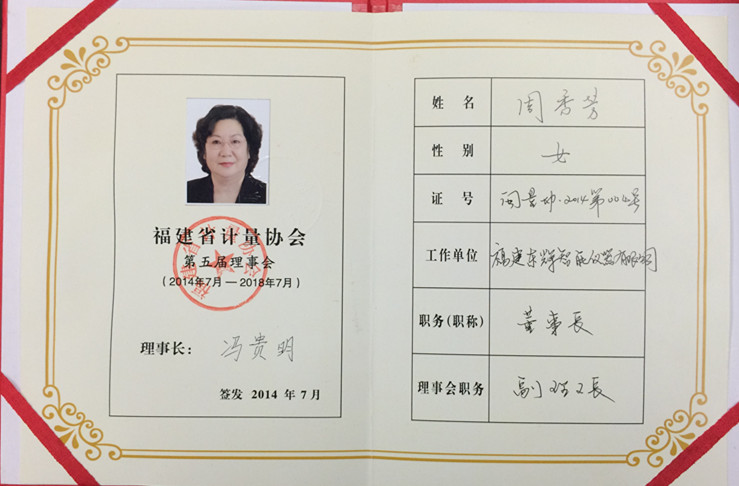 福建省计量协会
第五届理事会
(2014年7月—2018年7月)
理事长: 冯贵明
签发 2014 年 7 月
姓 名 周香芳
性 别 女
证 号 2014第004号
工作单位 福建东辉智能仪器有限公司
职务(职称) 董事长
理事会职务 副理事长